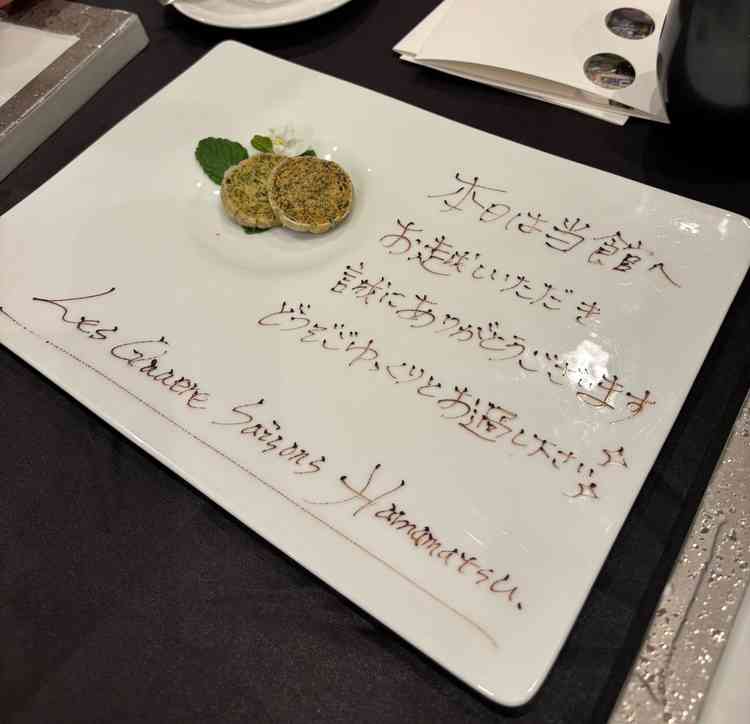 本日は当館へ
お越しいただき
誠にありがとうございます
どうぞごゆっくりとお過し下さい
Les Quatre Saisons Hamamatsu.